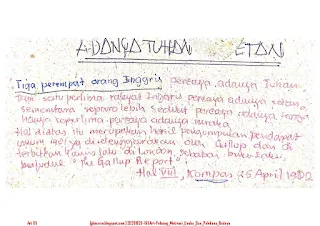 ADANYA TUHAN ETAN
Tiga perempat orang Inggris percaya adanya Tuhan
Tapi satu perlima rakyat Inggris percaya adanya setan,
sementara separo lebih sedikit percaya adanya sorga
Hanya seperlima percaya adanya neraka
Hal diatas itu merupakan hasil pengumpulan pendapat
umum 1981 yg di selenggarakan oleh Gallup dan di
terbitkan Kamis lalu di London sebagai buku
berjudul "The Gallup Report".
Hal VIII Kompas 25 April 1982
Art 05